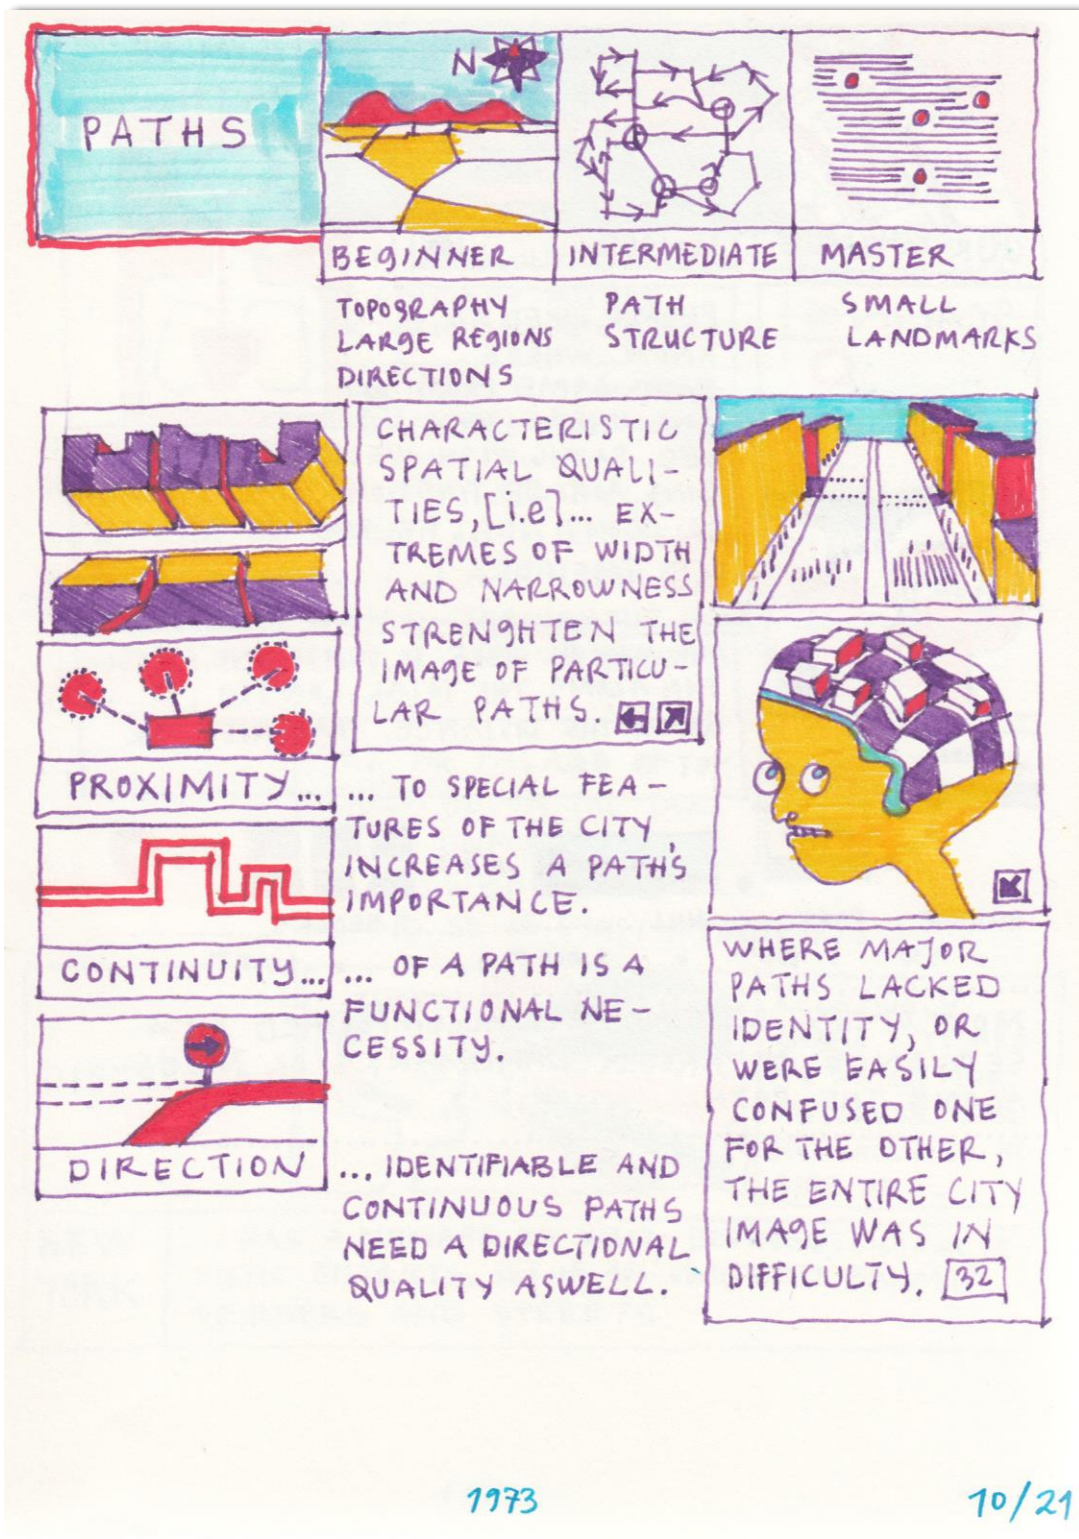 PATHS
N
BEGINNER
INTERMEDIATE
MASTER
TOPOGRAPHY
LARGE REGIONS
DIRECTIONS
PATH
STRUCTURE
SMALL
LANDMARKS
CHARACTERISTIC
SPATIAL QUALI-
TIES, [i.e]... EX-
TREMES OF WIDTH
AND NARROWNESS
STRENGHTEN THE
IMAGE OF PARTICU-
LAR PATHS.
PROXIMITY...
... TO SPECIAL FEA-
TURES OF THE CITY
INCREASES A PATH'S
IMPORTANCE.
CONTINUITY...
... OF A PATH IS A
FUNCTIONAL NE-
CESSITY.
DIRECTION
... IDENTIFIABLE AND
CONTINUOUS PATHS
NEED A DIRECTIONAL
QUALITY ASWELL.
WHERE MAJOR
PATHS LACKED
IDENTITY, OR
WERE EASILY
CONFUSED ONE
FOR THE OTHER,
THE ENTIRE CITY
IMAGE WAS IN
DIFFICULTY. 32
1973
10/21